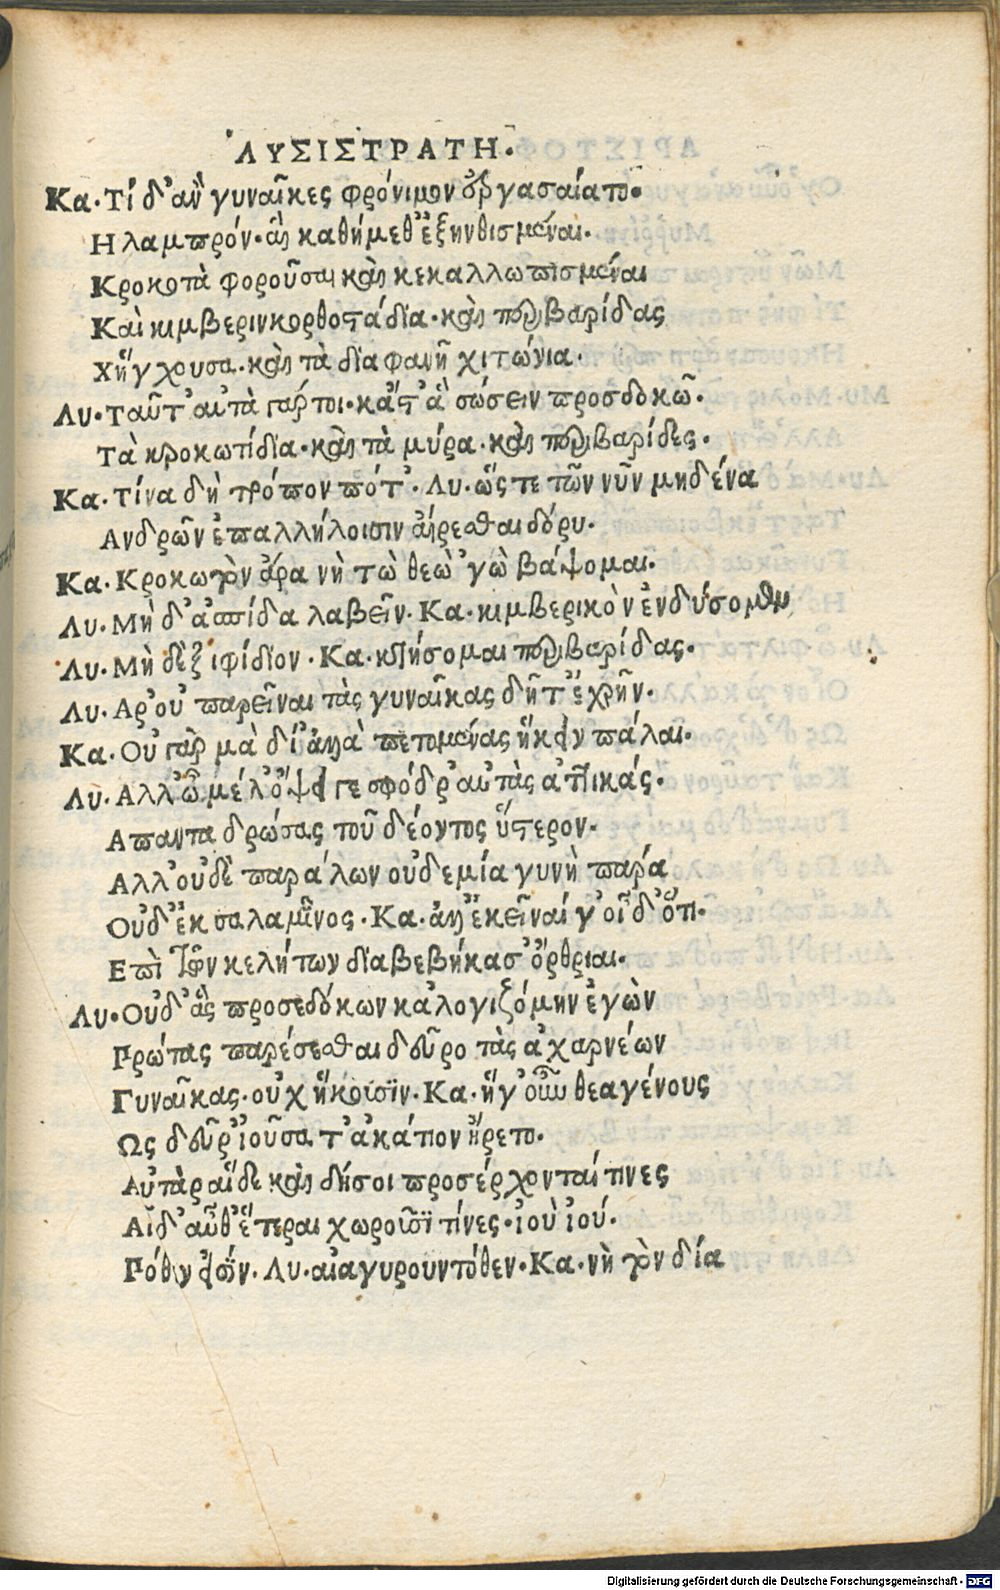 ΛΥΣΙΣΤΡΑΤΗ.
Κα. Τί δ' ἂν γυναῖκες φρόνιμον ἐργασαίατο.
Η λαμπρόν. αἳ καθήμεθ' ἐξηνθισμέναι.
Κροκωτὰ φοροῦσαι καὶ κεκαλλωπισμέναι
Καὶ κιμβερινκορθοστάδια. καὶ περιβαρίδας
Χἤγχουσα. καὶ τὰ διαφανῆ χιτώνια.
Λυ. Ταῦτ' αὐτὰ γάρ τοι. κἄστ' ἃ σώσειν προσδοκῶ.
Τὰ κροκωτίδια. καὶ τὰ μύρα. καὶ περιβαρίδες.
Κα. Τίνα δὴ τρόπον πότ'. Λυ. ὥς τε τῶν νῦν μηδένα
Ανδρῶν ἐπαλλήλοισιν αἴρεσθαι δόρυ.
Κα. Κροκωτὸν ἄρα νὴ τὼ θεὼ 'γὼ βάψομαι.
Λυ. Μὴ δ' ἀσπίδα λαβεῖν. Κα. κιμβερικὸν ἐνδύσομαι
Λυ. Μὴ δὲ ξιφίδιον. Κα. κτήσομαι περιβαρίδας.
Λυ. Αρ' οὐ παρεῖναι τὰς γυναῖκας δῆτ' ἐχρῆν.
Κα. Οὐ γὰρ μὰ δί' ἀλλὰ πετομένας ἥκειν πάλαι.
Λυ. Αλλ' ὦ μέλ' ὄψει γε σφόδρ' αὐτὰς ἀττικάς.
Απαντα δρώσας τοῦ δέοντος ὕστερον.
Αλλ' οὐδὲ παράλων οὐδεμία γυνὴ πάρα
Οὐδ' ἐκ σαλαμῖνος. Κα. ἀλλ' ἐκεῖναί γ' οἶδ' ὅτι.
Επὶ τῶν κελήτων διαβεβήκασ' ὄρθριαι.
Λυ. Οὐδ' ἃς προσεδόκων κἀλογιζόμην ἐγὼν
Πρώτας παρέσεσθαι δεῦρο τὰς ἀχαρνέων
Γυναῖκας. οὐχ ἥκουσιν. Κα. ἥ γ' οὖν θεαγένους
Ως δεῦρ' ἰοῦσα τ' ἀκάτιον ᾔρετο.
Αὐτὰρ αἵδε καὶ δή σοι προσέρχονταί τινες
Αἱδ' αὖθ' ἕτεραι χωροῦσί τίνες. ἰοὺ ἰού.
Πόθεν εἰσίν. Λυ. αἰαγυρουντόθεν. Κα. νὴ τὸν δία
Digitalisierung gefördert durch die Deutsche Forschungsgemeinschaft - DFG